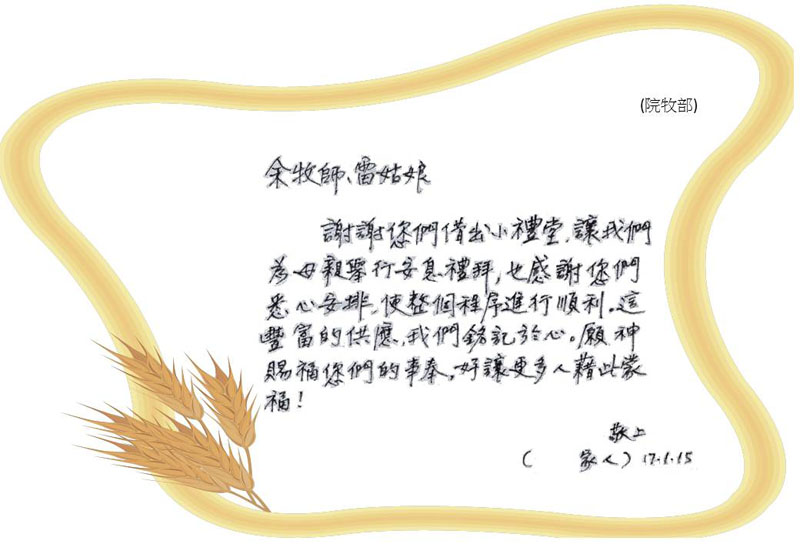 (院牧部)
余牧師、雷姑娘
謝謝您們借出小禮堂,讓我們
為母親舉行安息禮拜,也感謝您們
悉心安排,使整個程序進行順利。這
豐富的供應,我們銘記於心。願神
賜福您們的事奉,好讓更多人藉此蒙
福!
敬上
( 家人) 17.1.15